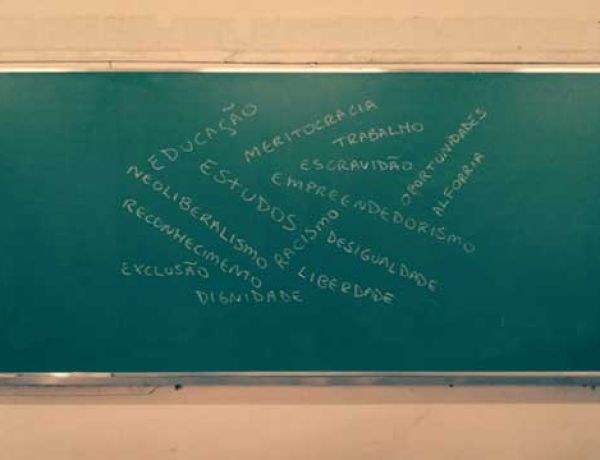 EDUCAÇÃO
MERITOCRACIA
TRABALHO
OPORTUNIDADES
ESCRAVIDÃO
ALFORRIA
ESTUDOS
EMPREENDEDORISMO
NEOLIBERALISMO
RACISMO
RECONHECIMENTO
DESIGUALDADE
EXCLUSÃO
LIBERDADE
DIGNIDADE